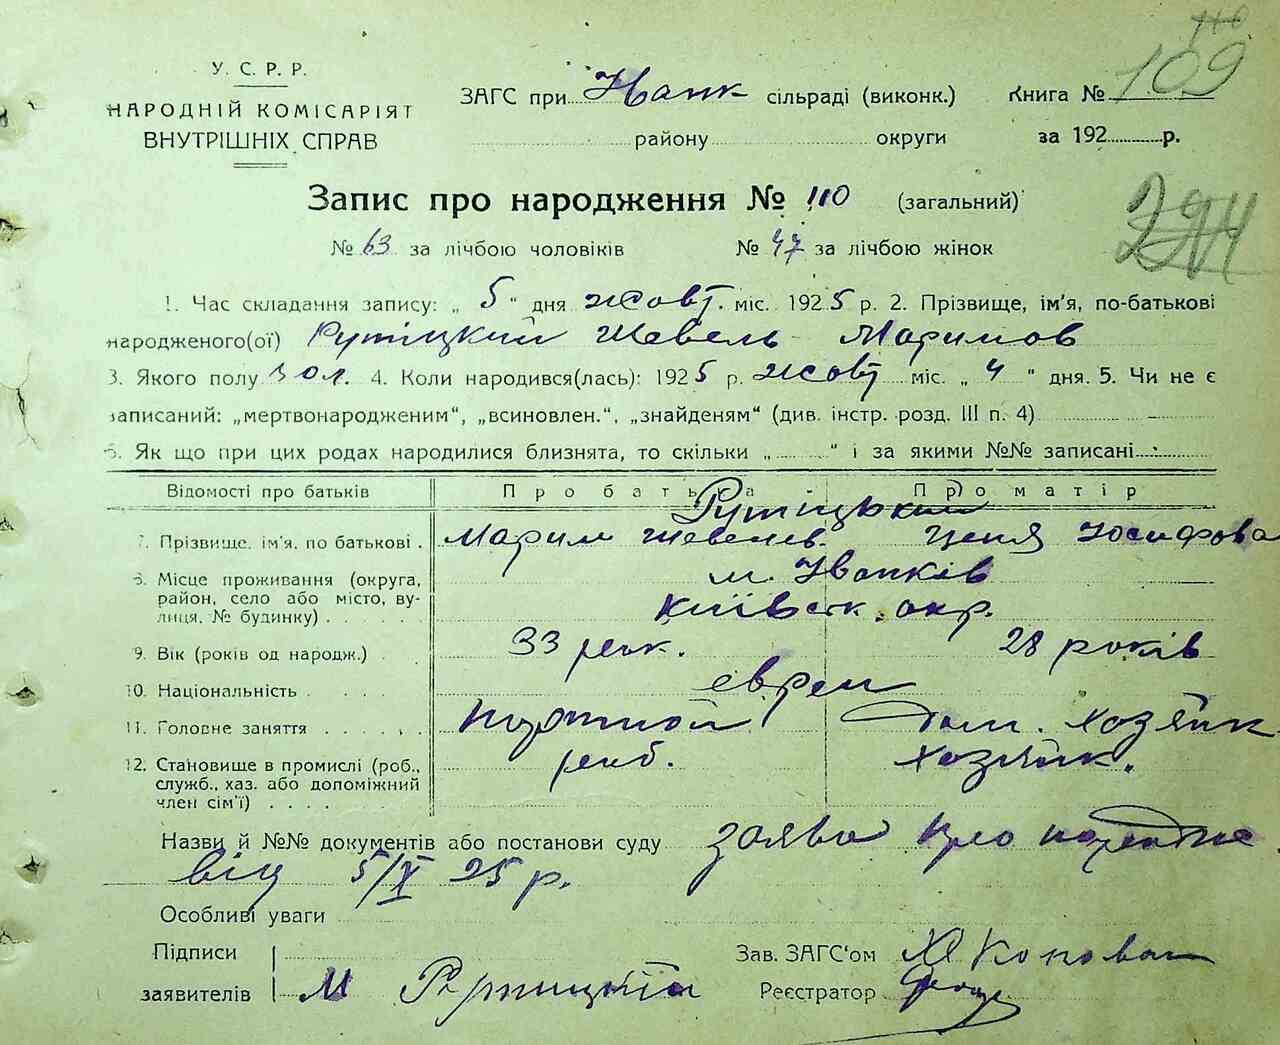 110
109
У. С. Р. Р.
НАРОДНІЙ КОМІСАРІЯТ
ВНУТРІШНІХ СПРАВ
ЗАГС при Іванк сільраді (виконк.) Книга №
району округи за 192 р.
Запис про народження № 110 (загальний)
274
№ 63 за лічбою чоловіків № 47 за лічбою жінок
1. Час складання запису: „ 5 “ дня жовт. міс. 1925 р. 2. Прізвище, ім'я, по-батькові
народженого(ої) Рутіцкий Шевель Маримов
3. Якого полу чол. 4. Коли народився(лась): 1925 р. жовт міс. „ 4 “ дня. 5. Чи не є
записаний: „мертвонародженим“, „всиновлен.“, „знайденям“ (див. інстр. розд. III п. 4)
6. Як що при цих родах народилися близнята, то скільки „ “ і за якими №№ записані
Відомості про батьків Про батька Про матір
Рутіцький
7. Прізвище, ім'я, по батькові Марим Шевелев. Ценя Йосифова
8. Місце проживання (округа, м. Іванків
район, село або місто, ву-
лиця, № будинку) Київськ. окр.
9. Вік (років од народж.) 33 рок. 28 років
10. Національність евреи
11. Головне заняття портной дом. хозяйк.
12. Становище в промислі (роб., роб. хозяйк.
служб., хаз. або допоміжний
член сім'ї)
Назви й №№ документів або постанови суду заява про народже
від 5/X 25 р.
Особливі уваги
Підписи Зав. ЗАГС'ом
заявителів М Рутицкий Реєстратор